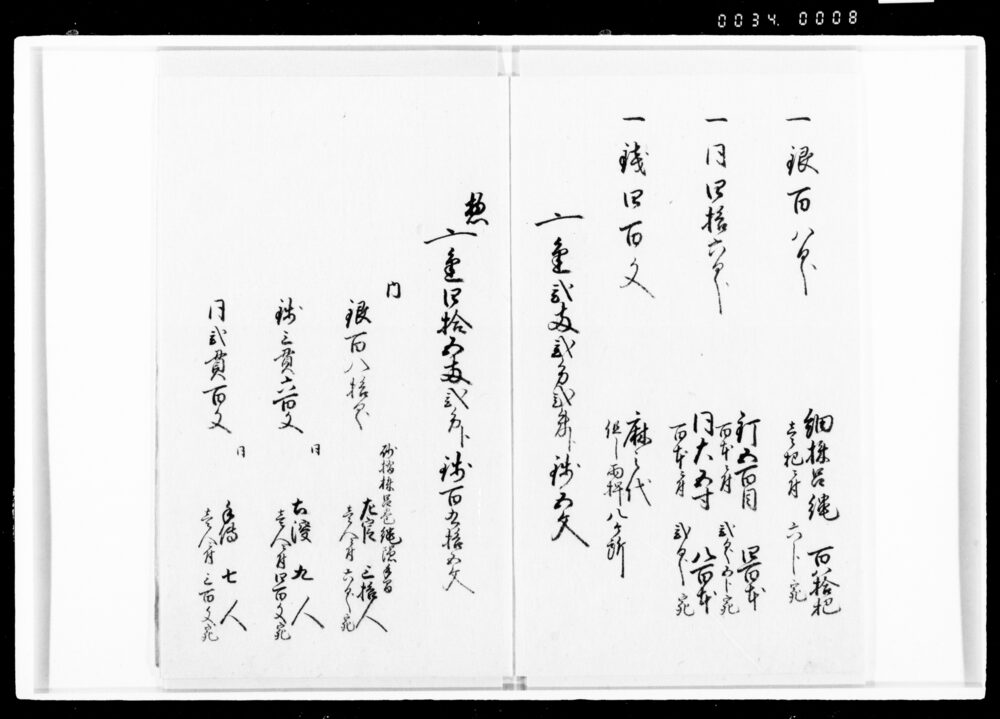 0034. 0008
一銀百八匁
細棕呂縄 百八拾把
壱把ニ付 六分宛
一同四拾六匁
釘五百目 四百本
百本ニ付 弐匁五分宛
同大五寸 八百本
百本ニ付 弐匁宛
一銭四百文
麻之代
但シ両桿八ケ所
〆金弐両弐分弐朱ト銭五文
惣
〆金四拾五両弐分ト銭百五拾五文
内
銀百八拾匁
左官 三拾人
壱人ニ付 六匁宛
銭三貫六百文
同
九人
壱人ニ付四百文宛
同弐貫百文
同
手伝 七人
壱人ニ付三百文宛